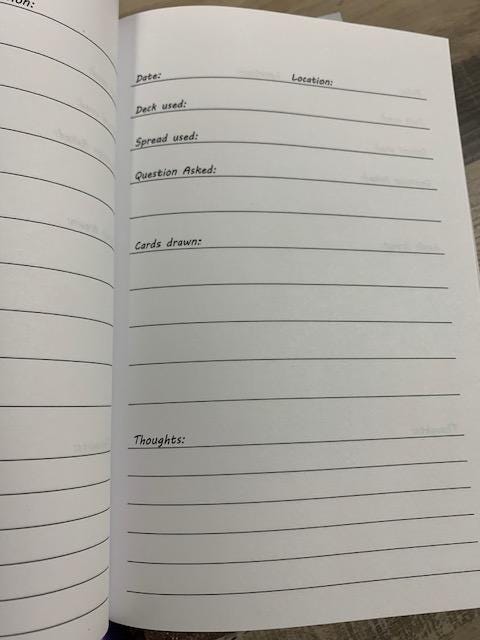 Date: Location:
Deck used:
Spread used:
Question Asked:
Cards drawn:
Thoughts: